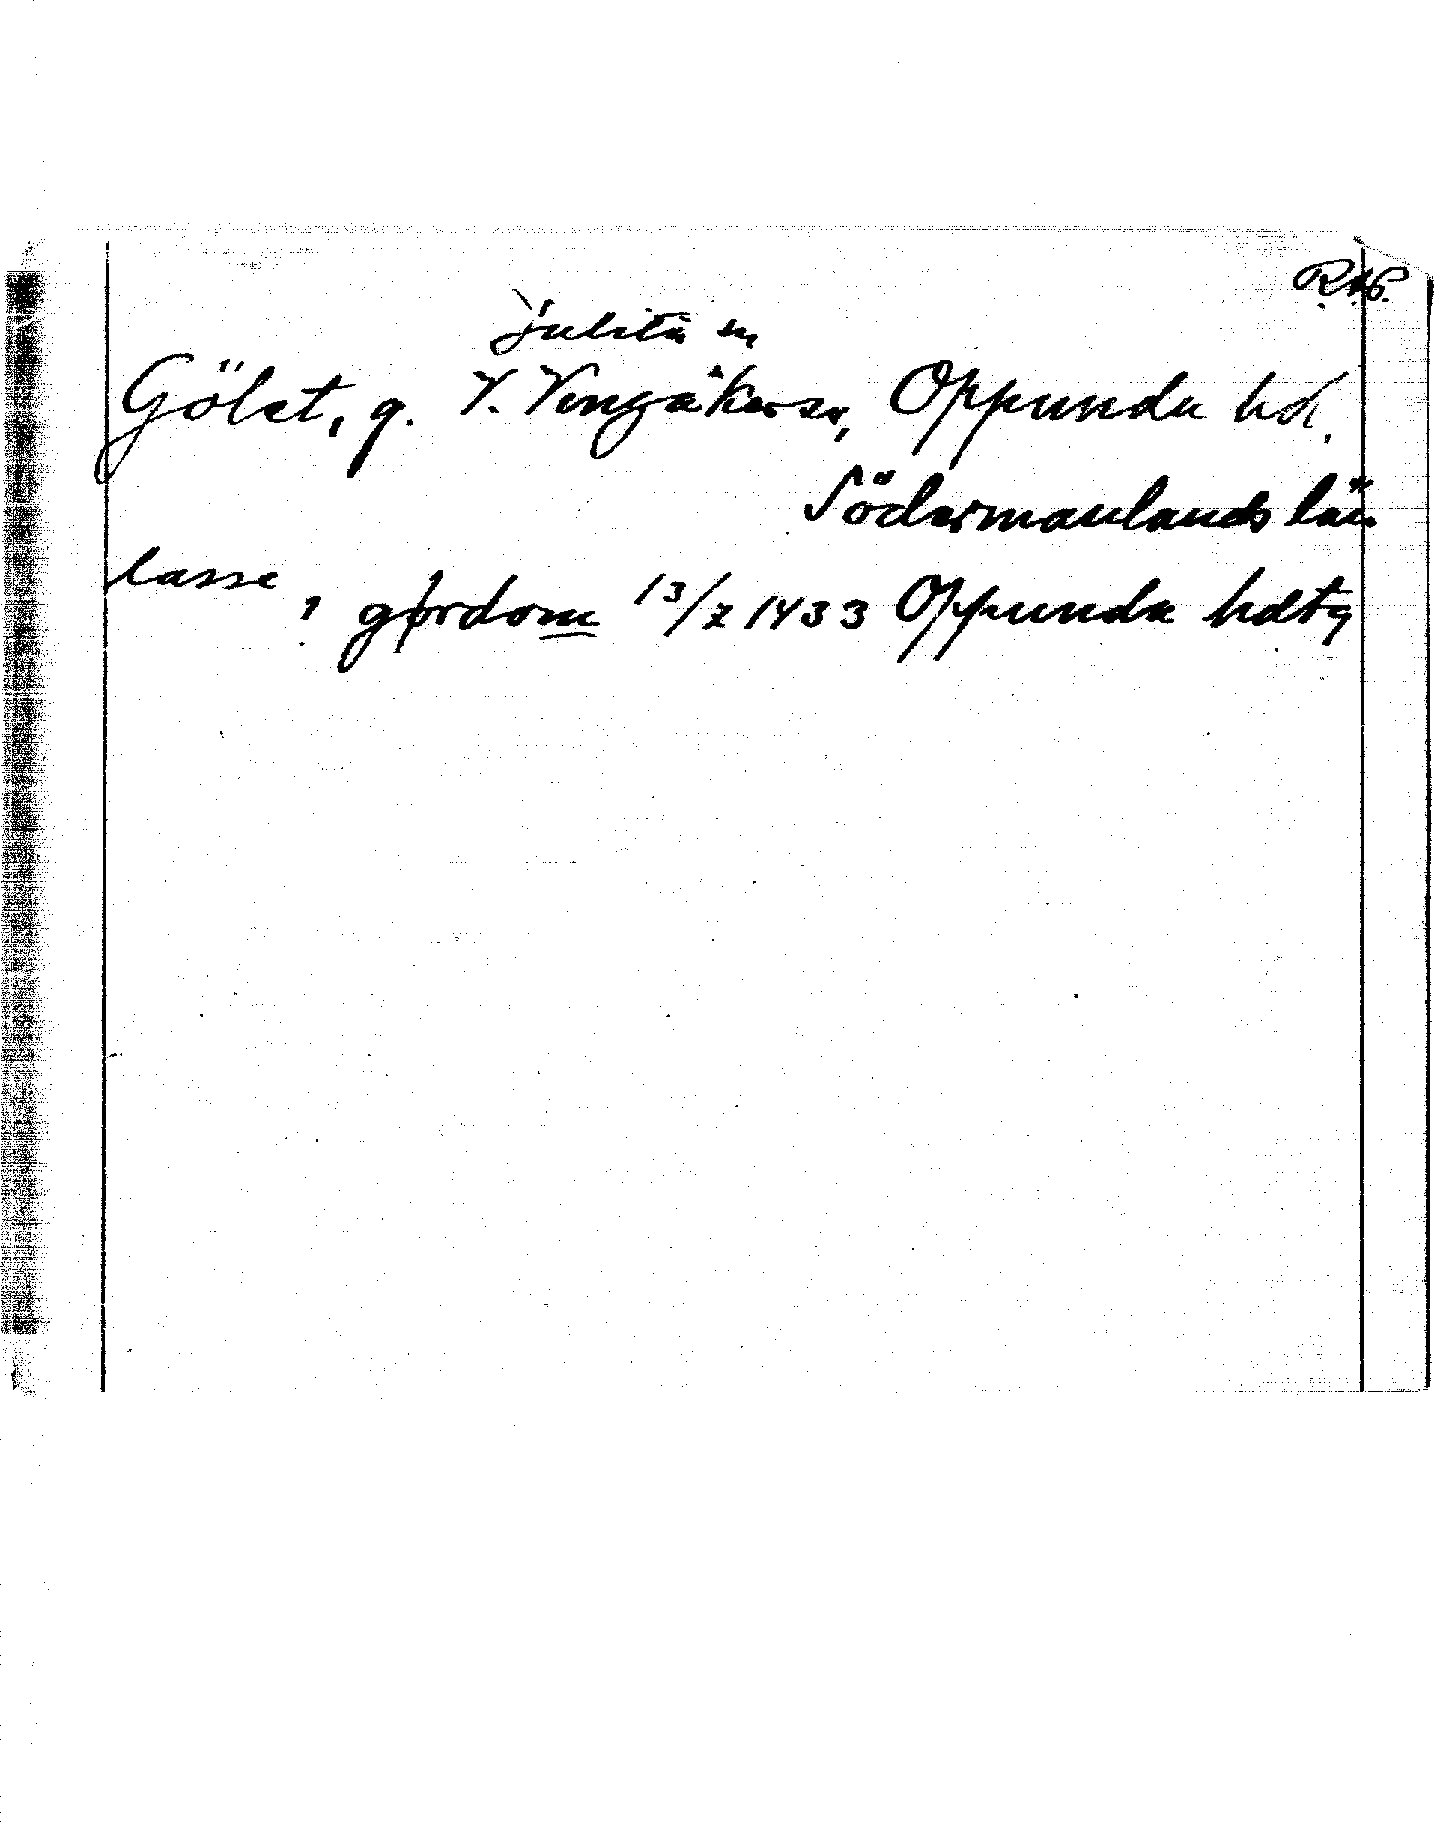 R.A.P.
Julita sn
Gölet, g. V. Vingåkers sn, Oppunda hd.
Södermanlands län
lasse, i gørdom 13/2 1433 Oppunda hdtg